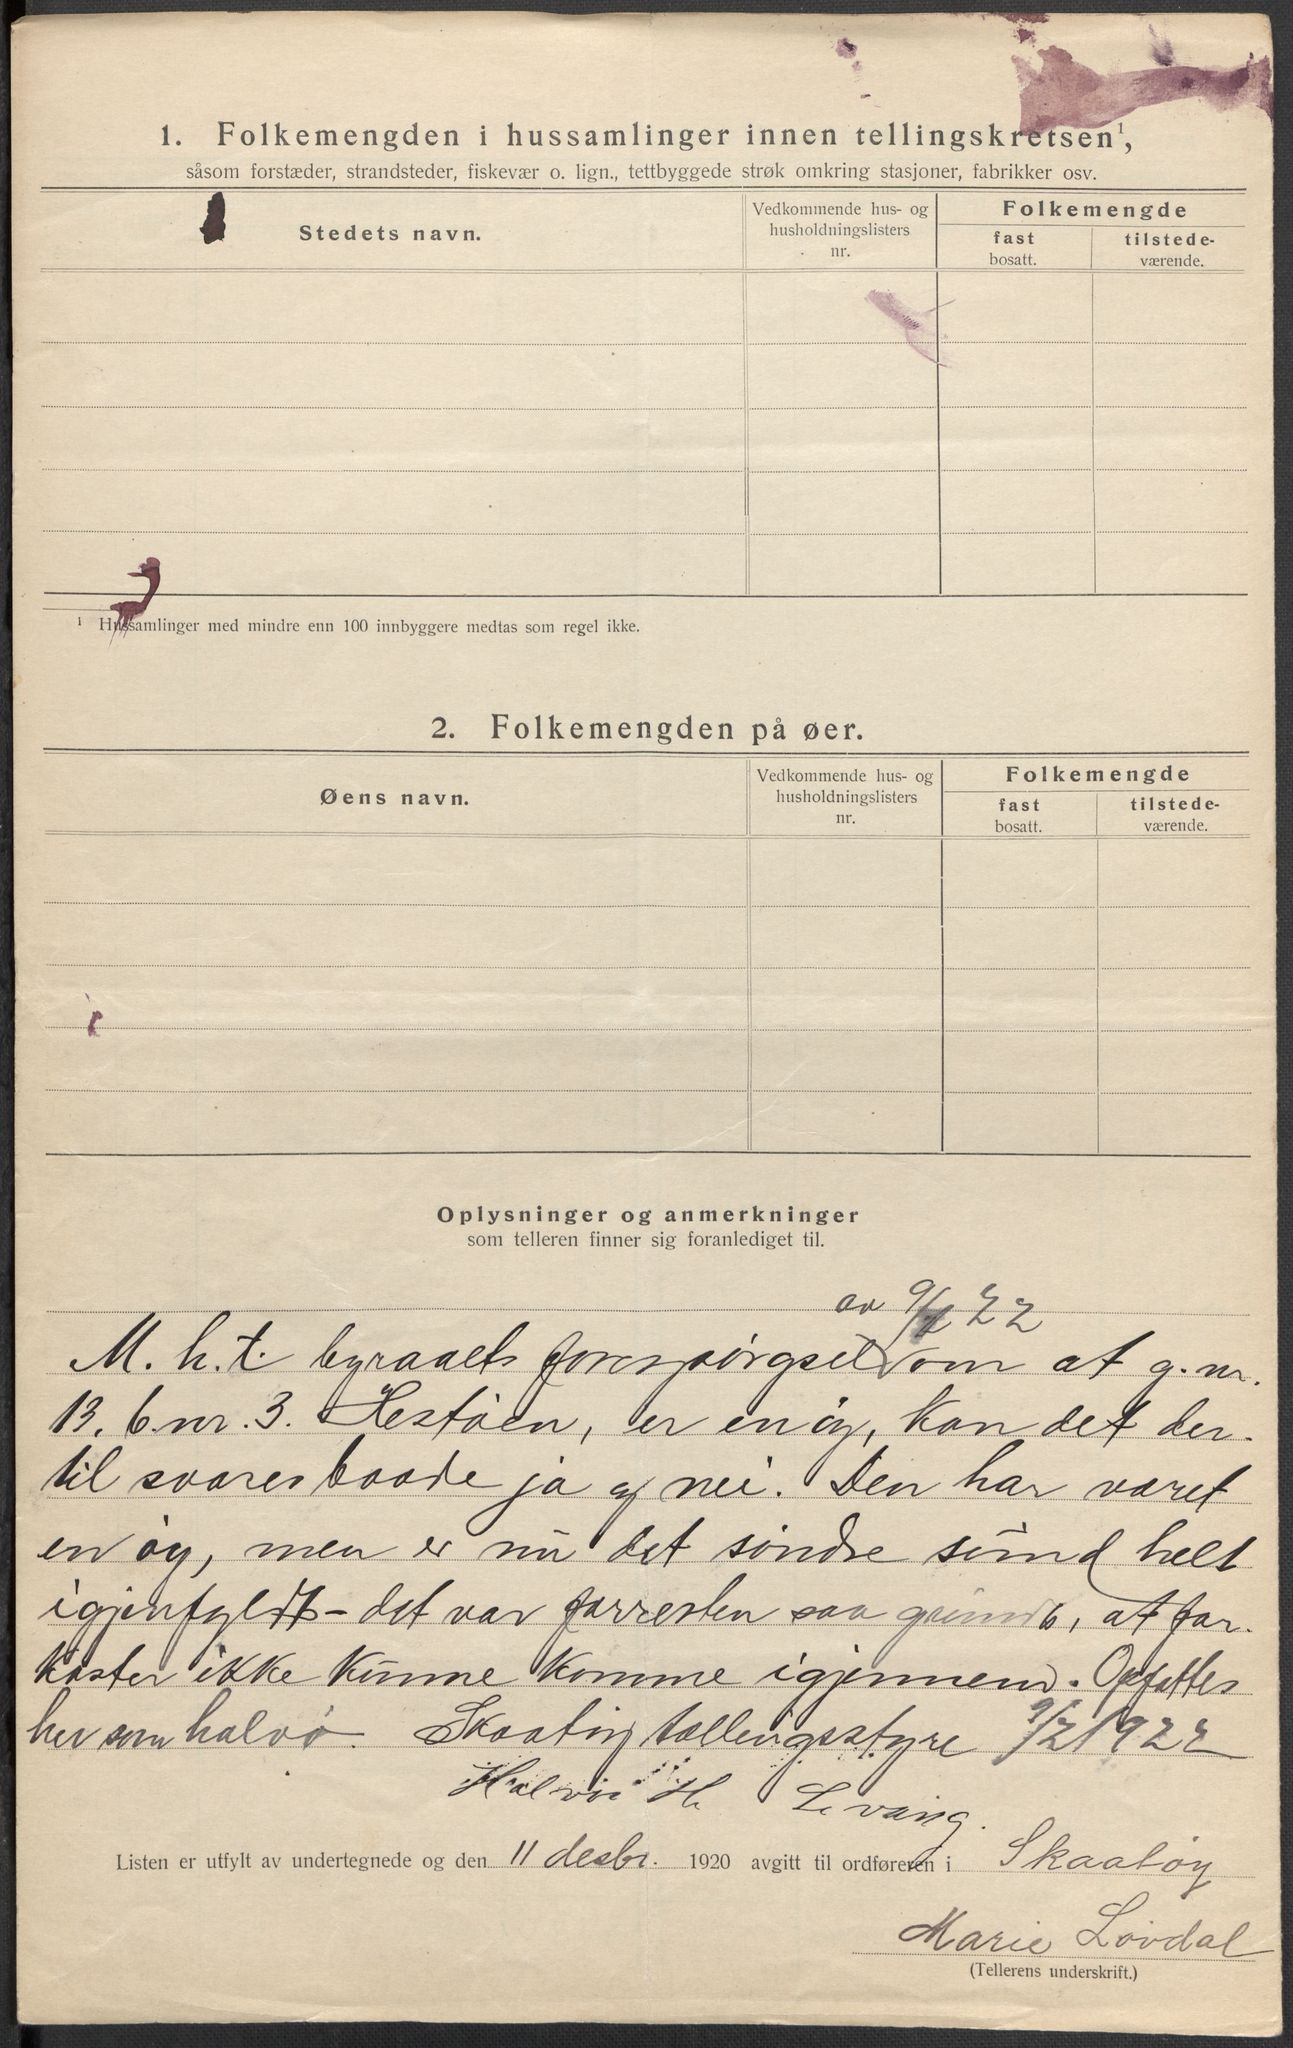 1. Folkemengden i hussamlinger innen tellingskretsen¹,
såsom forstæder, strandsteder, fiskevær o. lign., tettbyggede strøk omkring stasjoner, fabrikker osv.
Stedets navn.
Vedkommende hus- og
husholdningslisters
nr.
Folkemengde
fast
bosatt.
tilstede-
værende.
¹ Hussamlinger med mindre enn 100 innbyggere medtas som regel ikke.
2. Folkemengden på øer.
Øens navn.
Vedkommende hus- og
husholdningslisters
nr.
Folkemengde
fast
bosatt.
tilstede-
værende.
Oplysninger og anmerkninger
som telleren finner sig foranlediget til.
av 22
M. h. t. byraaets forespørgsel om at g. nr.
13, b. nr. 3. Hestøen, er en øy, kan det der-
til svares baade ja og nei. Den har været
en øy, men er nu det søndre sund helt
igjenfyldt - det var forresten saa grundt, at far-
koster ikke kunne komme igjennem. Opfattes
her som halvø. Skaatøy tællingsstyre 9/2 1922
Halvor H. Levang.
Listen er utfylt av undertegnede og den 11 desbr. 1920 avgitt til ordføreren i Skaatøy
Marie Løvdal
(Tellerens underskrift.)